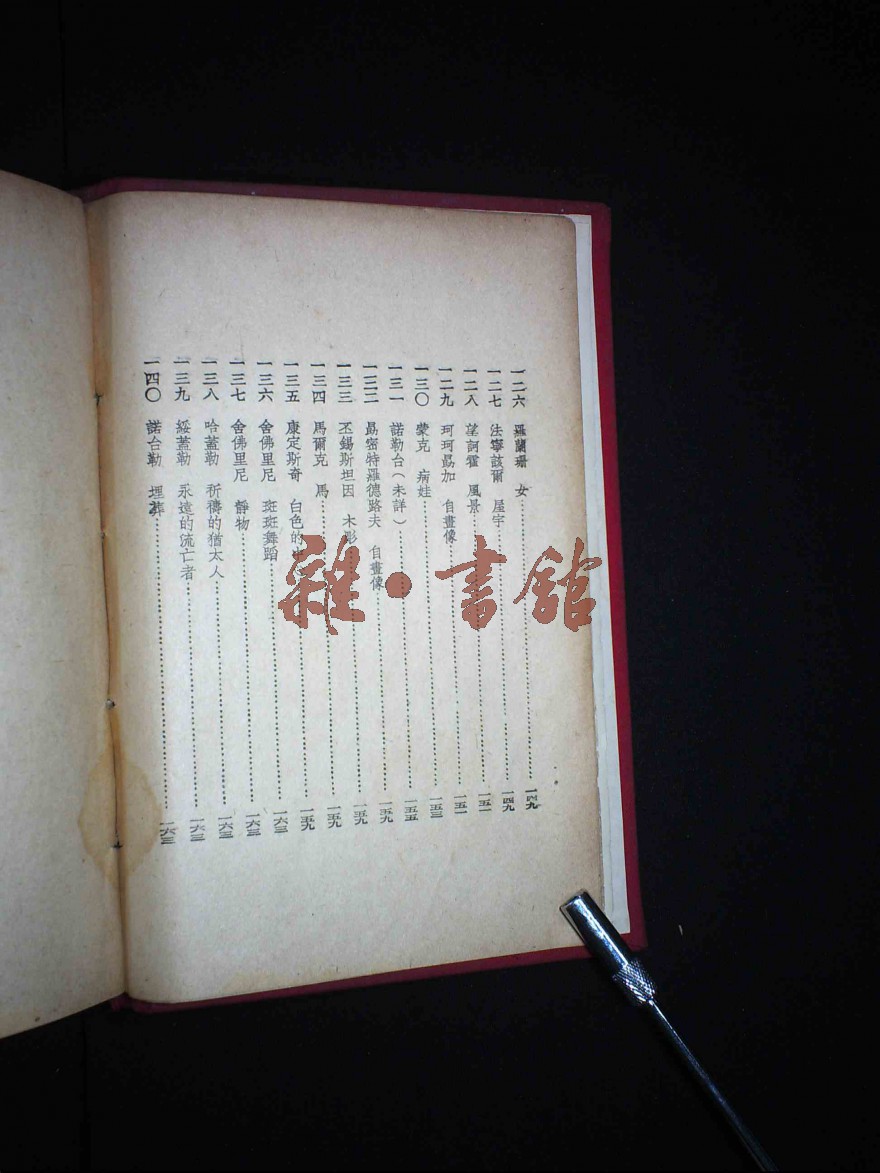 一二六 羅蘭珊 女 一四九
一二七 法寧該爾 屋宇 一四九
一二八 望訶霍 風景 一五一
一二九 珂珂勗加 自畫像 一五一
一三〇 蒙克 病娃 一五三
一三一 諾勒台(未詳) 一五五
一三二 勗密特羅德路夫 自畫像 一五九
一三三 丕錫斯坦因 木彫 一五九
一三四 馬爾克 馬 一五九
一三五 康定斯奇 白色的 一五九
一三六 舍佛里尼 斑斑舞蹈 一六三
一三七 舍佛里尼 靜物 一六三
一三八 哈蓋勒 祈禱的猶太人 一六三
一三九 綏蓋勒 永遠的流亡者 一六三
一四〇 諾台勒 埋葬 一六三
雜·書館